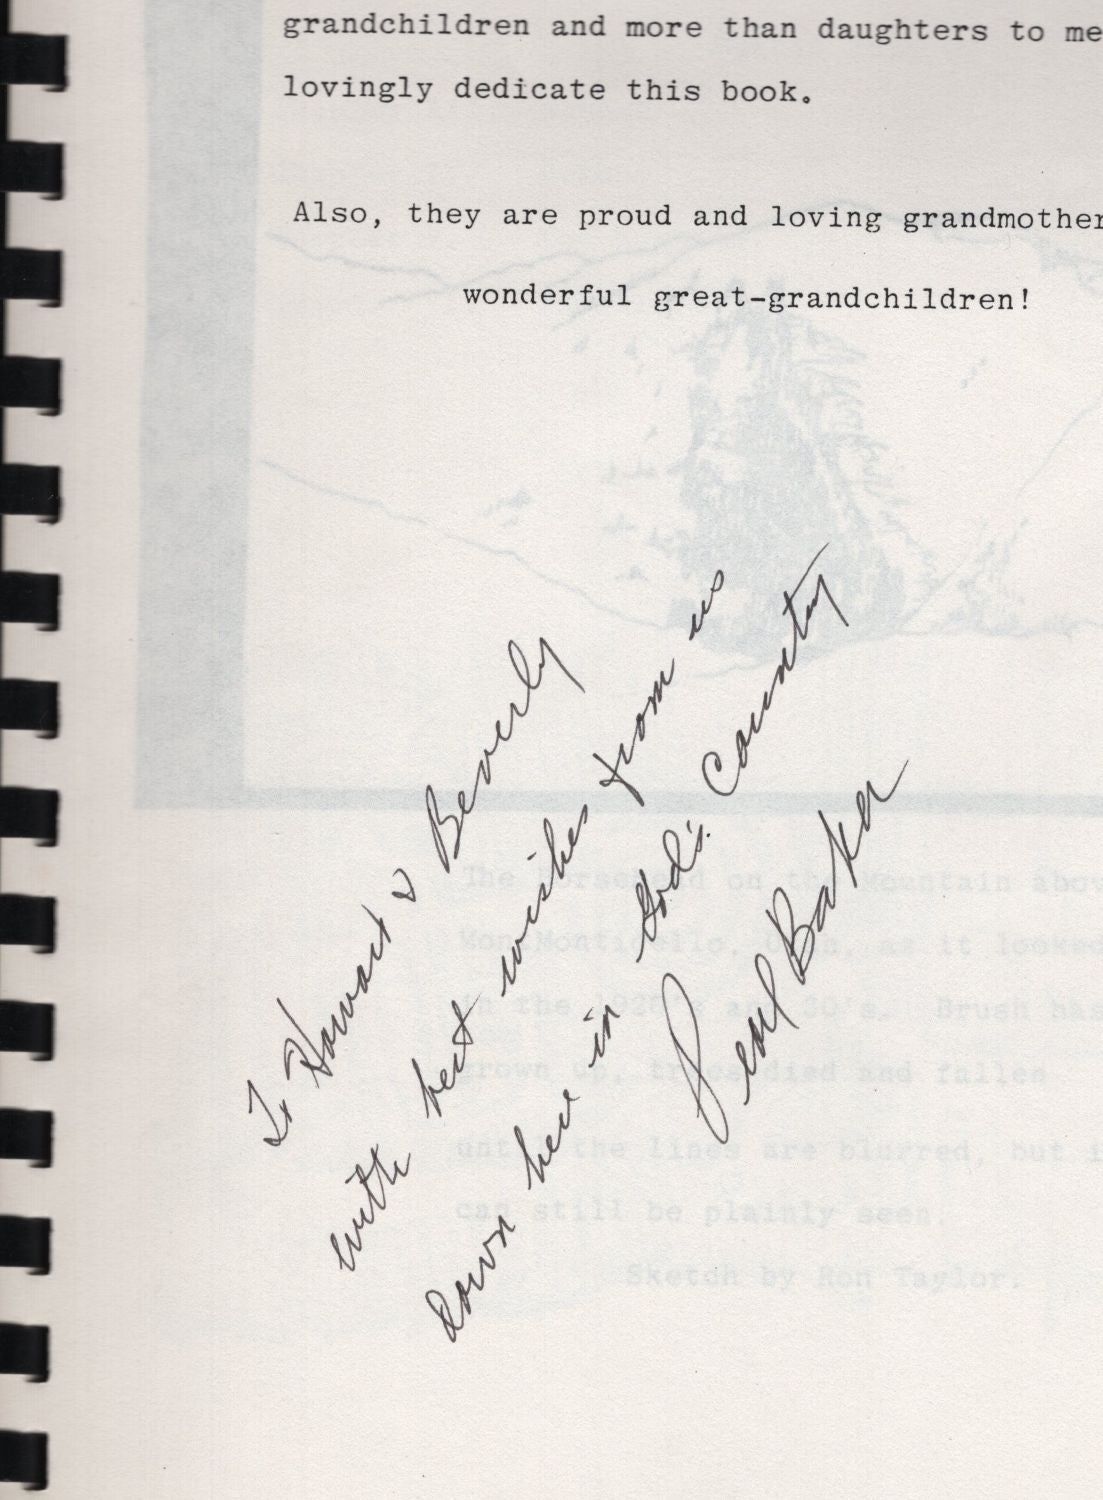 grandchildren and more than daughters to me
lovingly dedicate this book.
Also, they are proud and loving grandmother
wonderful great-grandchildren!
To Howard & Beverly
with best wishes from us
down here in God's Country
Pearl Baker
The Horsehead on the Mountain abov
Monticello, Utah, as it looked
in the 1920's and 30's. Brush has
grown up, trees died and fallen
until the lines are blurred, but i
can still be plainly seen.
Sketch by Ron Taylor.